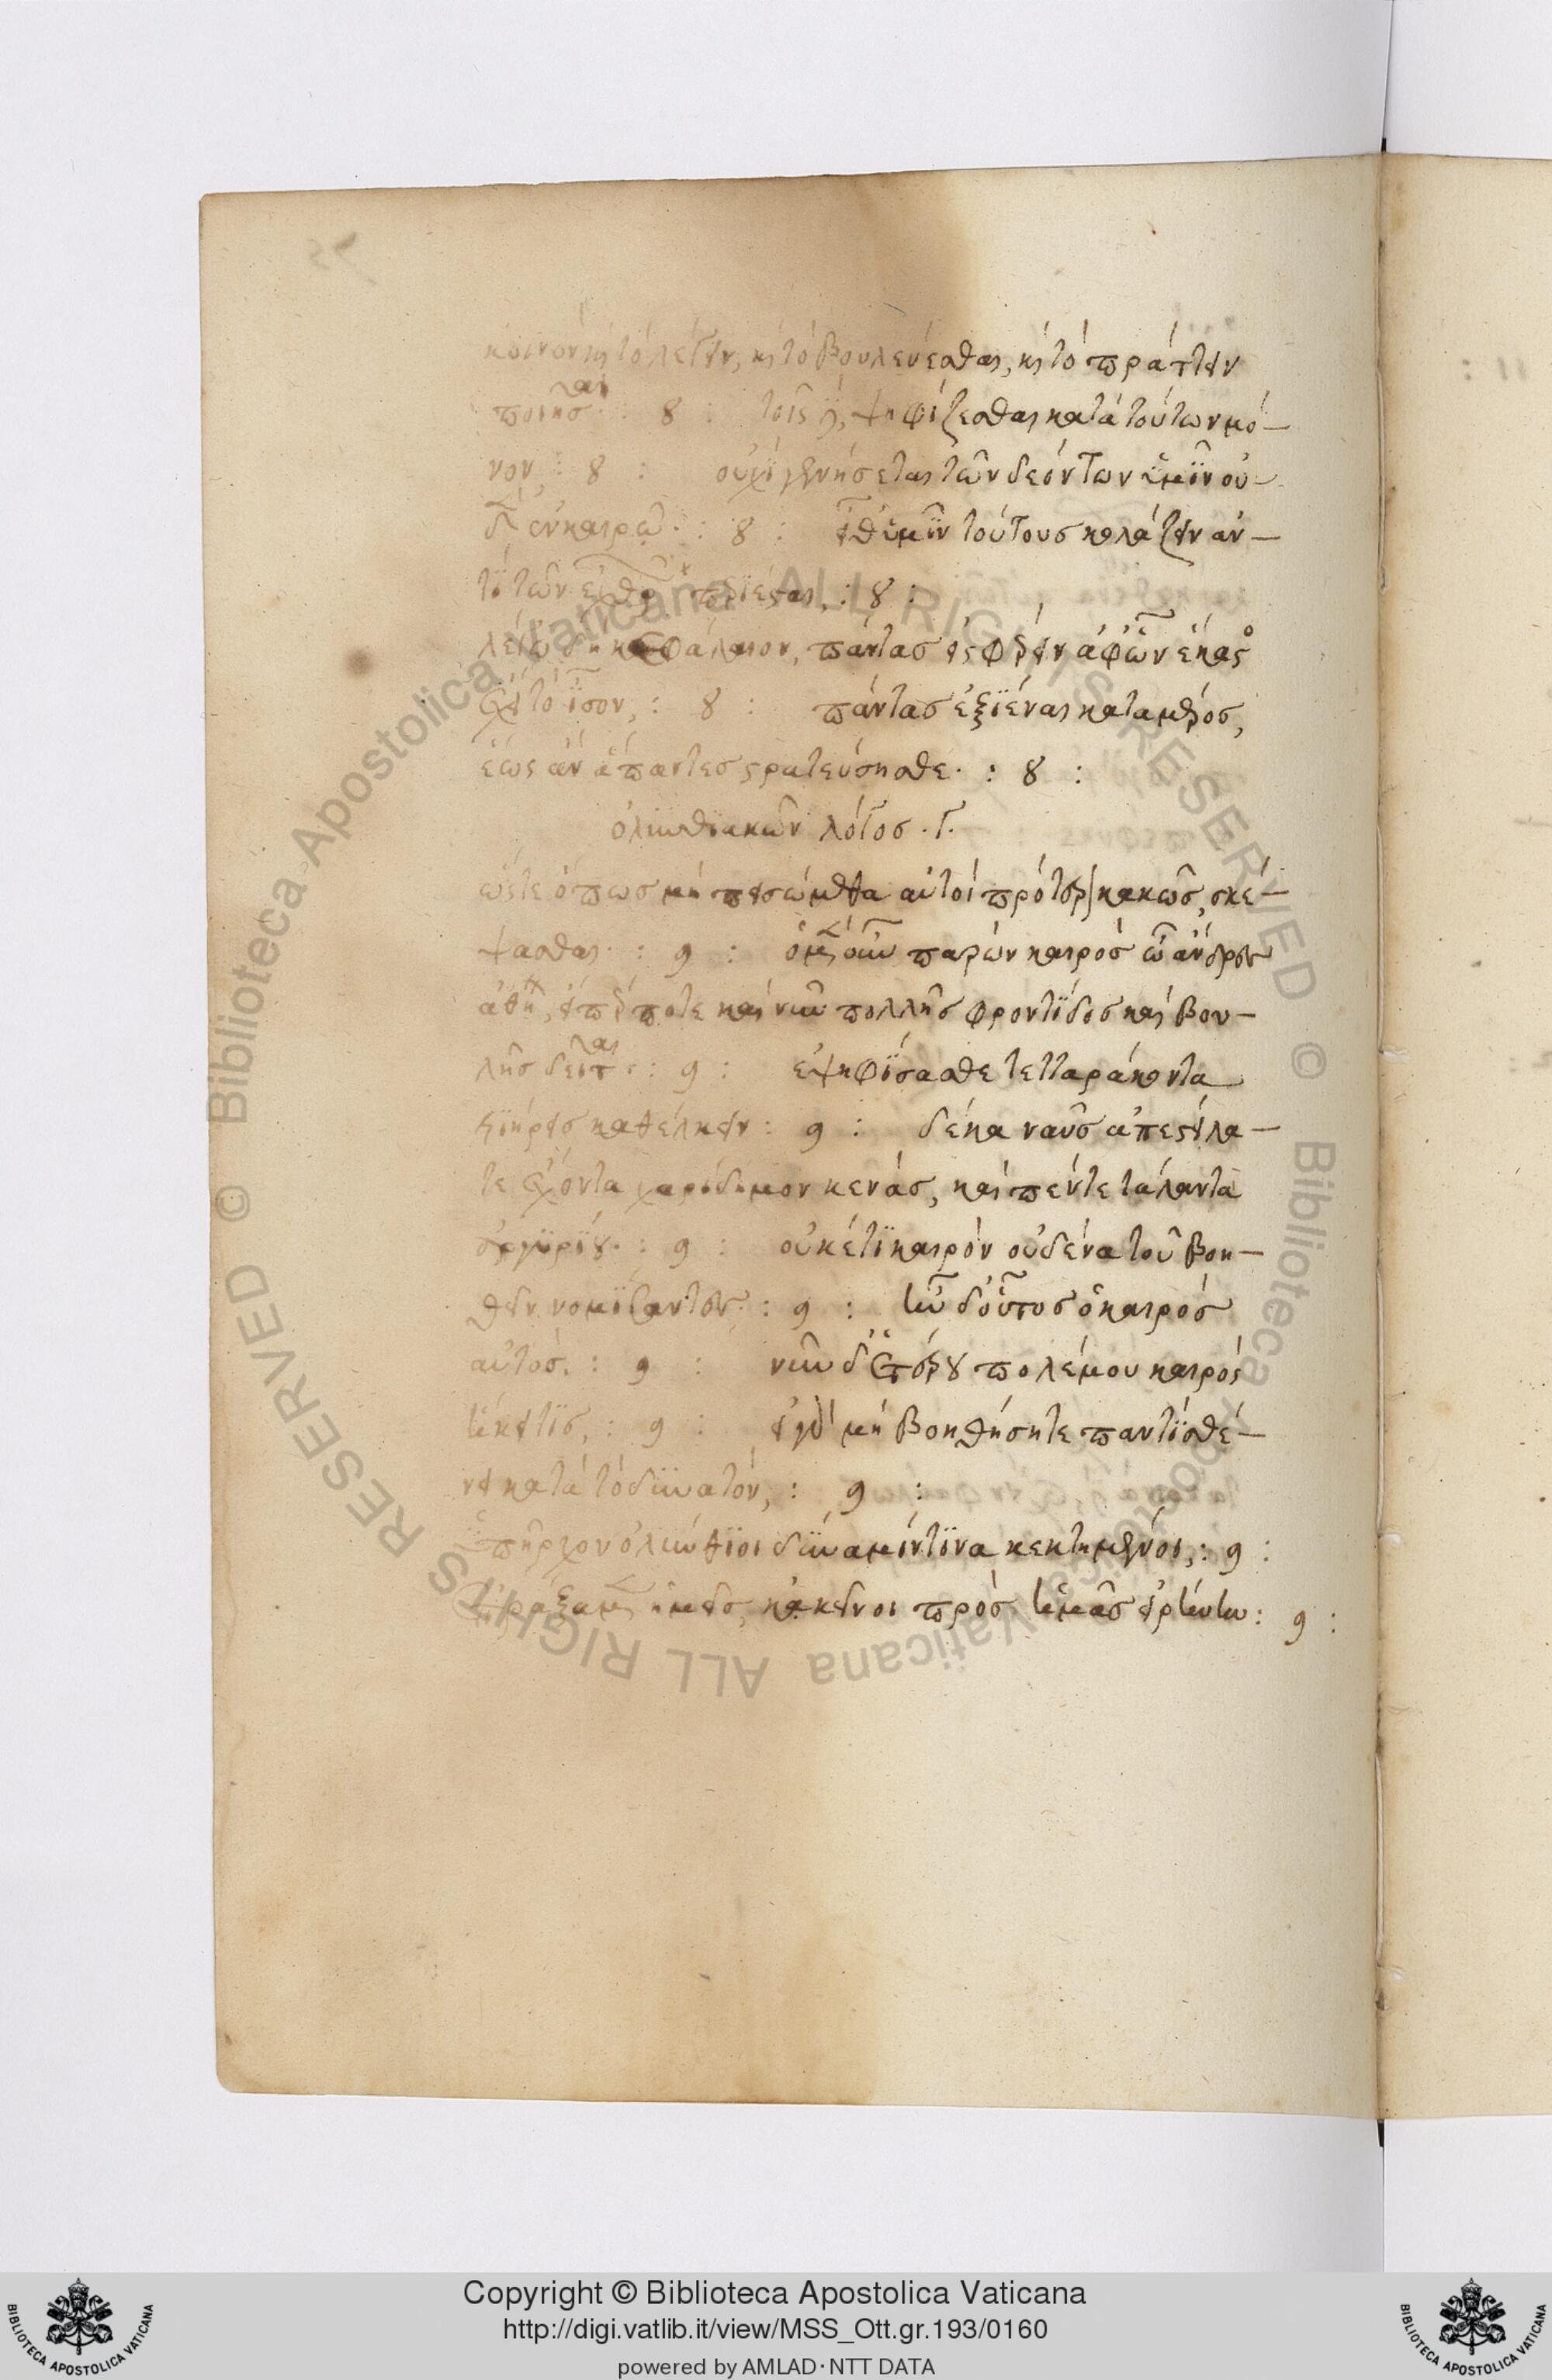 κοινὸν καὶ τὸ λέγειν, καὶ τὸ βουλεύεσθαι, καὶ τὸ πράττειν
ποιῆσαι : 8 : τοῖς δὲ, ψηφίζεσθαι κατὰ τούτων μό-
νον, : 8 : οὐχὶ γενήσεται τῶν δεόντων ὑμῖν οὐ-
δὲν ἐν καιρῷ. : 8 : εἶθ' ὑμῖν τούτους κολάζειν ἀν-
τὶ τῶν ἐχθρῶν περιέσται, : 8 :
λέγω δὴ κεφάλαιον, πάντας εἰσφέρειν ἀφ' ὧν ἕκαστος
ἔχει τὸ ἴσον, : 8 : πάντας ἐξιέναι κατὰ μέρος,
ἕως ἂν ἅπαντες στρατεύσησθε. : 8 :
ὀλυνθιακῶν λόγος .γ.
ὥστε ὅπως μὴ πεισώμεθα αὐτοὶ πρότερον κακῶς, σκέ-
ψασθαι. : 9 : ὁ μὲν οὖν παρὼν καιρὸς ὦ ἄνδρες
ἀθη, εἴπερ ποτε καὶ νῦν πολλῆς φροντίδος καὶ βου-
λῆς δεῖται. : 9 : ἐψηφίσασθε τετταράκοντα
τριήρεις καθέλκειν : 9 : δέκα ναῦς ἀπεστείλα-
τε ἔχοντα χαρίδημον κενάς, καὶ πέντε τάλαντα
ἀργυρίου. : 9 : οὐκέτι καιρὸν οὐδένα τοῦ βοη-
θεῖν νομίσαντες. : 9 : ἦν δ' οὗτος ὁ καιρὸς
αὐτός. : 9 : νῦν δ' ἑτέρου πολέμου καιρὸς
ἥκει τις, : 9 : εἰ γὰρ μὴ βοηθήσητε παντὶ σθέ-
νει κατὰ τὸ δυνατόν, : 9 :
ὑπῆρχον ὀλύνθιοι δύναμίν τινα κεκτημένοι, : 9 :
ἐπράξαμεν ἡμεῖς, κἀκεῖνοι πρὸς ἡμᾶς εἰρήνην : 9 :
Copyright © Biblioteca Apostolica Vaticana
http://digi.vatlib.it/view/MSS_Ott.gr.193/0160
powered by AMLAD·NTT DATA
BIBLIOTECA APOSTOLICA VATICANA
BIBLIOTECA APOSTOLICA VATICANA
© Biblioteca Apostolica Vaticana ALL RIGHTS RESERVED
© Biblioteca Apostolica Vaticana ALL RIGHTS RESERVED